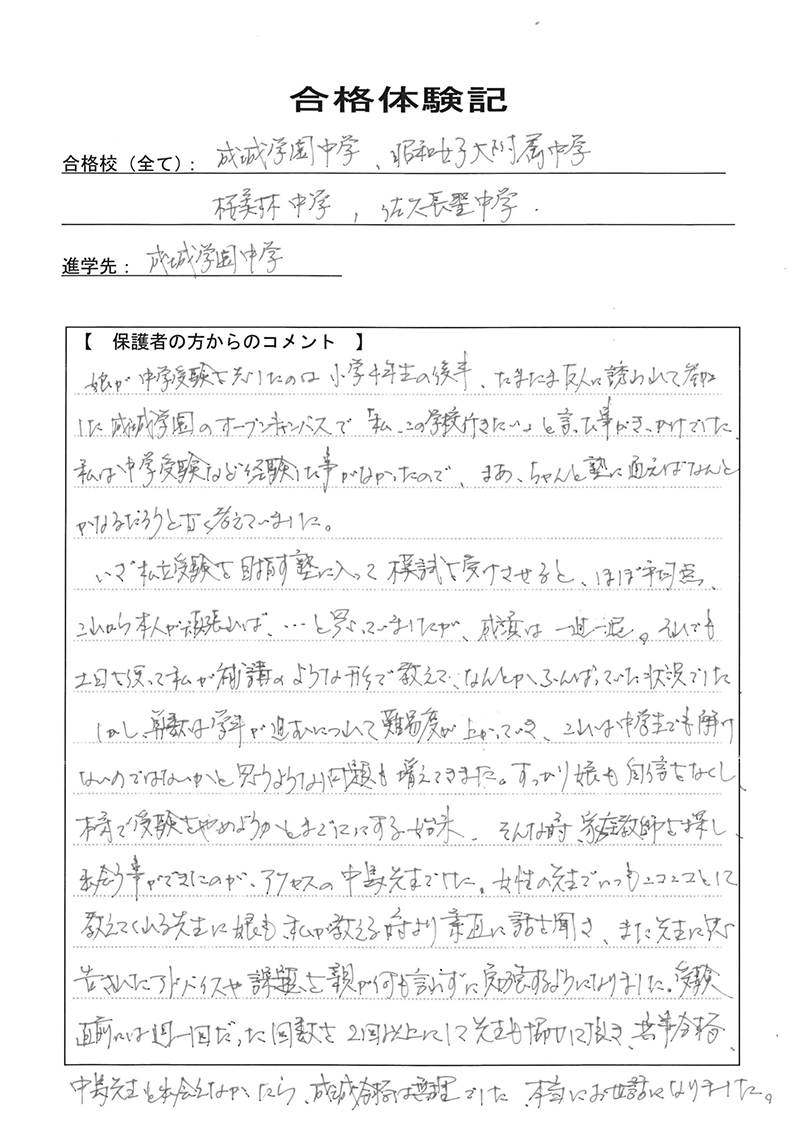 合格体験記
合格校（全て）: 成城学園中学、昭和女子大附属中学
桜美林中学，佐久長聖中学．
進学先： 成城学園中学
【　保護者の方からのコメント　】
娘が中学受験を志したのは小学4年生の後半、たまたま友人に誘われて参加
した成城学園のオープンキャンパスで「私、この学校行きたい」と言った事がきっかけでした。
私は中学受験など経験した事がなかったので、まあ、ちゃんと塾に通えばなんと
かなるだろうと甘く考えていました。
いざ私立受験を目指す塾に入って模試を受けさせると、ほぼ平均点、
これから本人が頑張れば、…と思っていましたが、成績は一進一退。それでも
土日を使って私が補講のような形で教えて、なんとかふんばっていた状況でした
しかし、算数は学年が進むにつれて難易度が上がっていき、これは中学生でも解け
ないのではないかと思うような問題も増えてきました。すっかり娘も自信をなくし、
本番で受験をやめようかとまで口にする始末。そんな時、家庭教師を探し、
出会う事ができたのが、アクセスの中島先生でした。女性の先生でいつもニコニコとして
教えてくれる先生に娘も私が教える時より素直に話を聞き、また先生に
告されたアドバイスや課題を親が何も言わずに勉強するようになりました。受験
直前には週一回だった回数を2回以上にして先生も 無事合格、
中島先生と出会えなかったら、成城合格は無理でした。本当にお世話になりました。